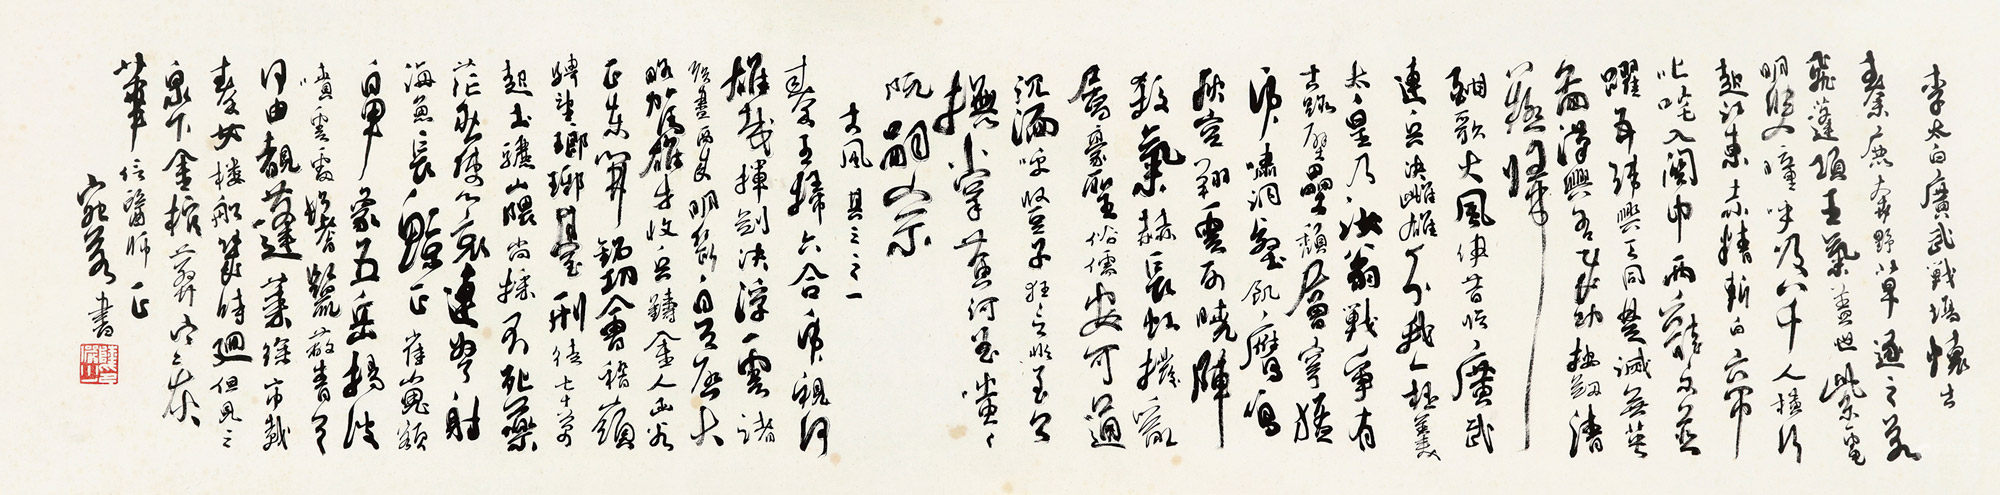 李太白廣武戰場懷古
秦鹿奔野草逐之若
飛蓬項王氣蓋世紫電
明雙瞳呼吸八千人橫行
起江東赤精斬白帝
叱咤入關中兩龍不並
躍五緯與天同楚滅無英
圖漢興有成功按劍清
極歸
酣歌大風伊昔臨廣武
連兵決雌雄分我一杯羹
太皇乃汝翁戰爭有
古蹟壁壘頹層穹猛
虎嘯洞壑飢鷹鳴
秋空翔雲列曉陣
殺氣赫長虹撥亂
屬豪聖俗儒安可通
沉湎呼豎子狂言非至公
撫掌黃河曲嗤嗤
阮嗣宗
古風其三之一
秦王掃六合虎視何
雄哉揮劍決浮雲諸
侯盡西來明斷自天啟大
略駕雄才收兵鑄金人函谷
正東開銘功會稽嶺
騁望瑯琊臺刑徒七十萬
起土驪山隈尚採不死藥
茫然使心哀連弩射
海魚長鯨正崔嵬額
鼻象五岳揚波
噴雲雷鬐鬣蔽青天
何由覩蓬萊徐市載
秦女樓船幾時迴但見三
泉下金棺葬寒灰
華信醫師正
書